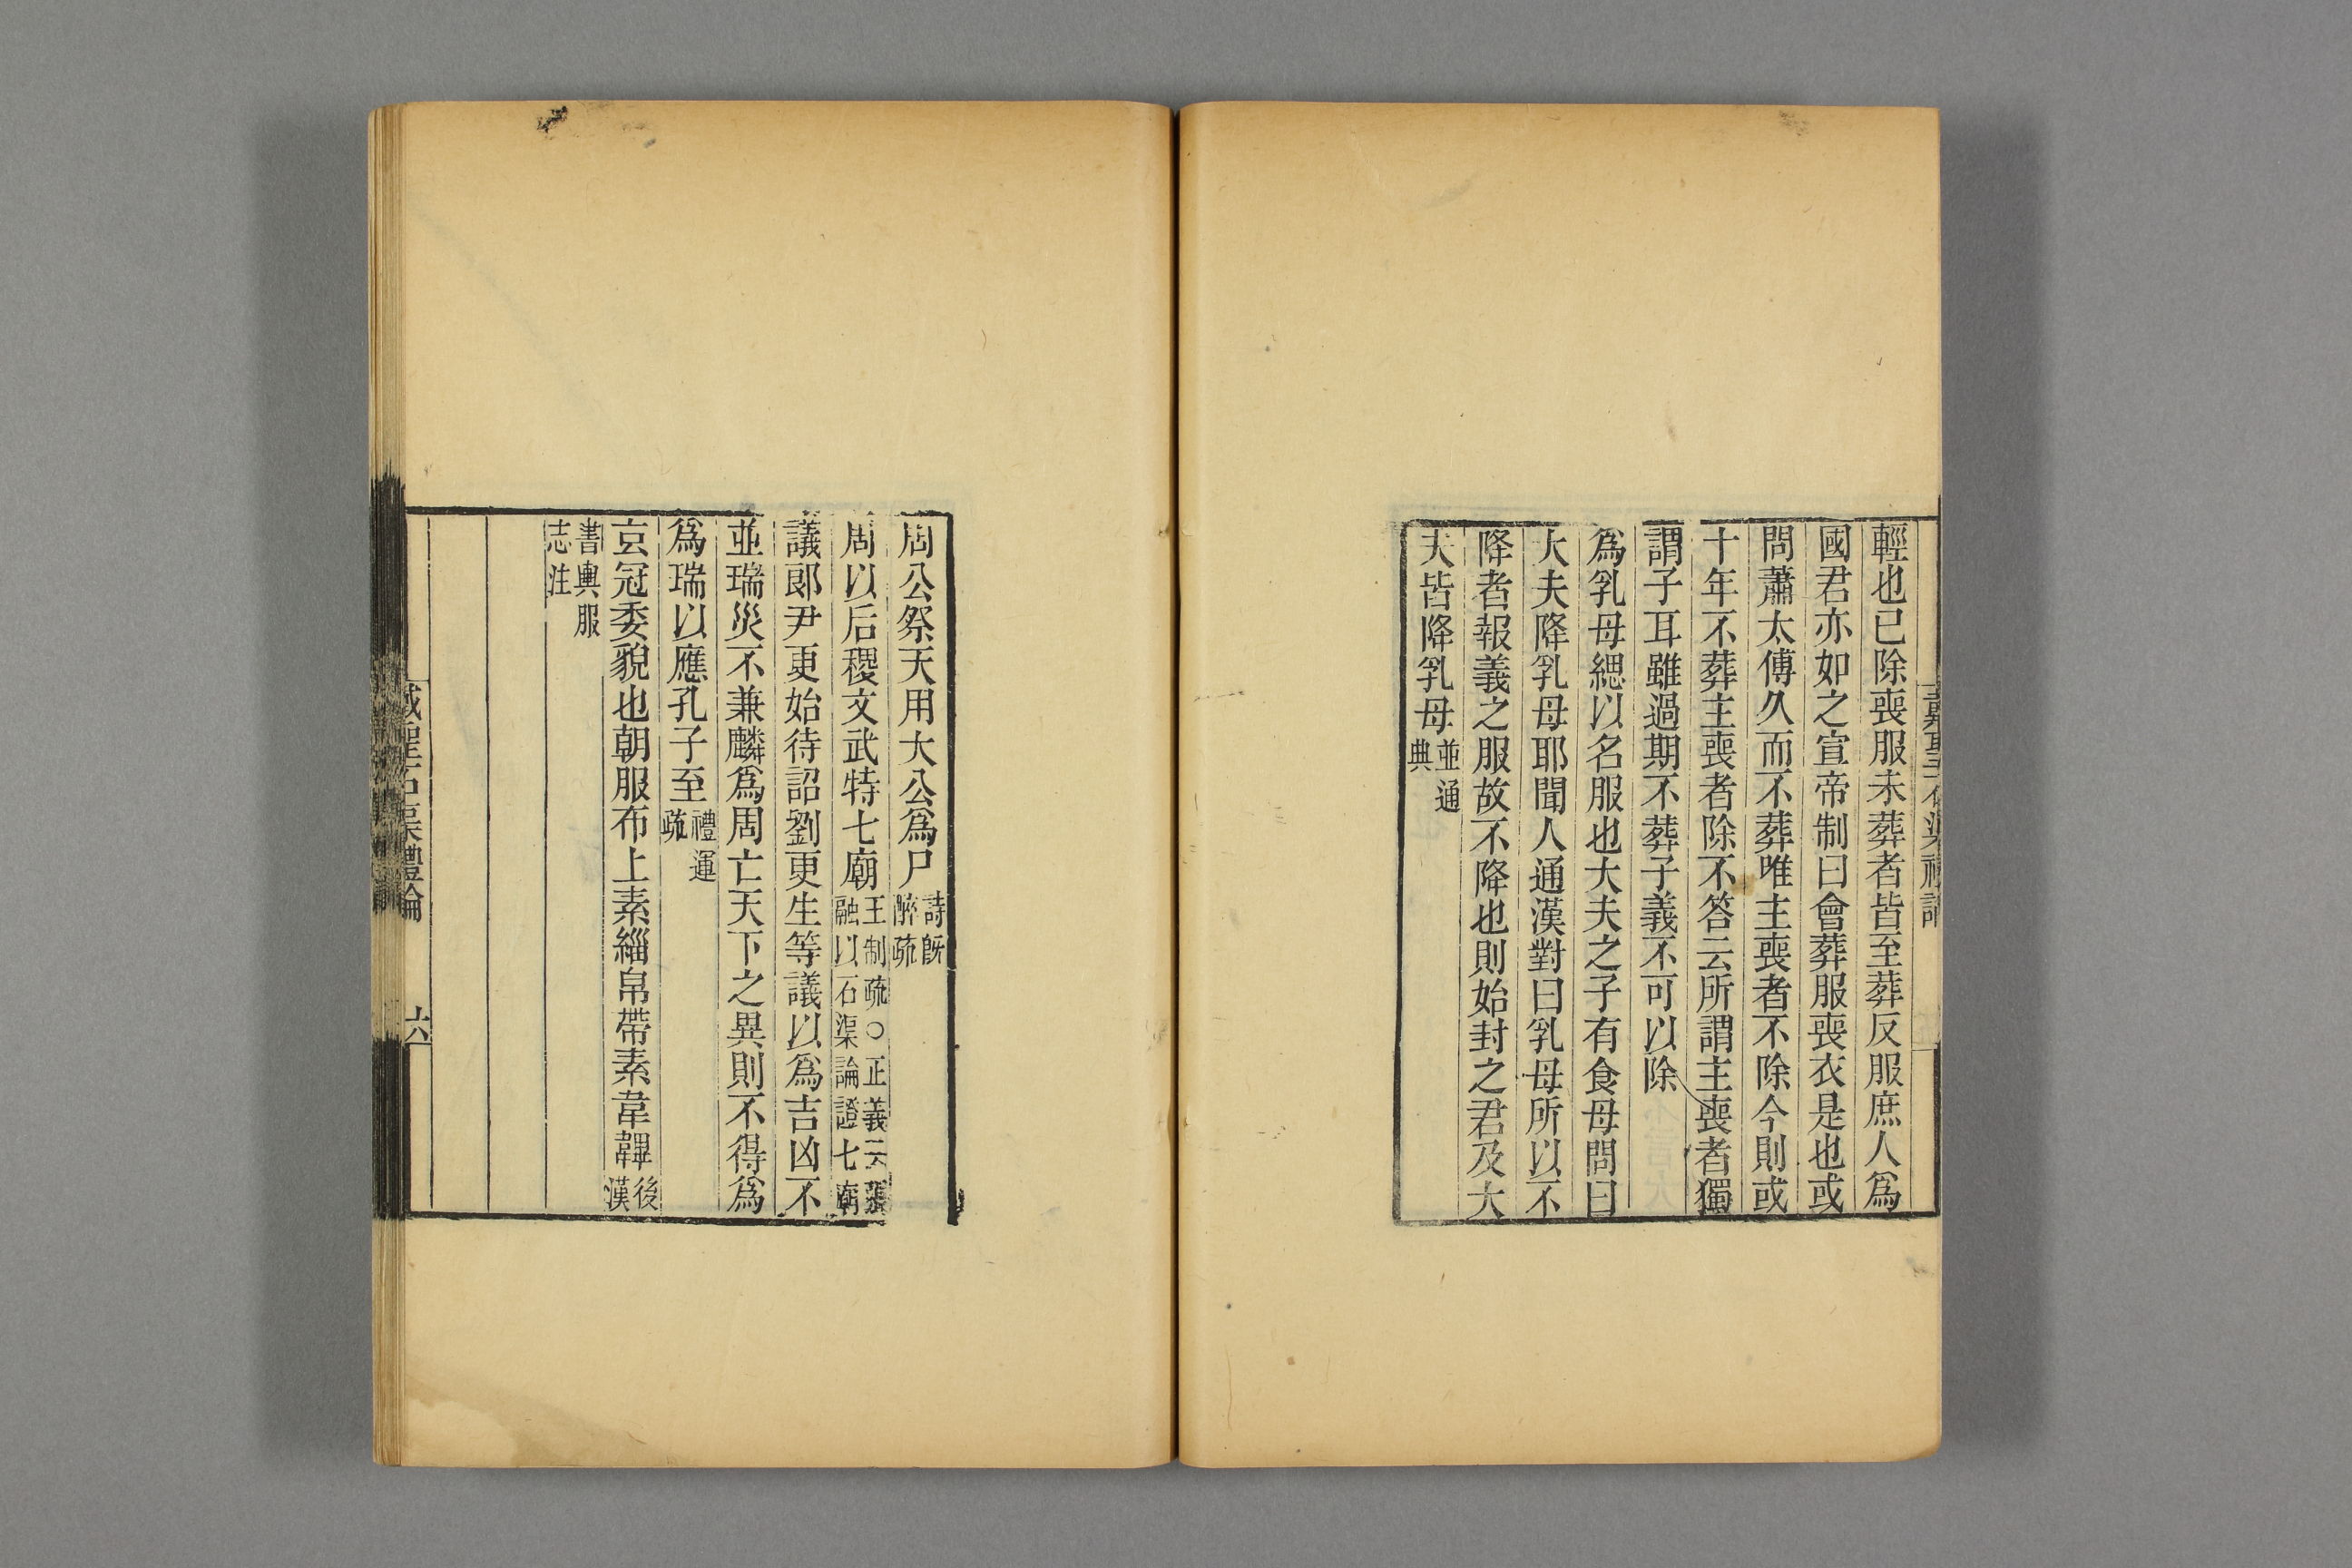 輕也已除喪服未葬者皆至葬反服庶人爲
國君亦如之宣帝制曰會葬服喪衣是也或
問蕭太傅久而不葬唯主喪者不除今則或
十年不葬主喪者除不答云所謂主喪者獨
謂子耳雖過期不葬子義不可以除
爲乳母緦以名服也大夫之子有食母問曰
大夫降乳母耶聞人通漢對曰乳母所以不
降者報義之服故不降也則始封之君及大
夫皆降乳母並通典
周公祭天用太公爲尸詩旣醉疏
周以后稷文武特七廟王制疏○正義云張融以石渠論證七廟
議郞尹更始待詔劉更生等議以爲吉凶不
並瑞災不兼麟爲周亡天下之異則不得爲
爲瑞以應孔子至禮運疏
玄冠委貌也朝服布上素緇帛帶素韋韠後漢
書輿服志注
石渠禮論
六